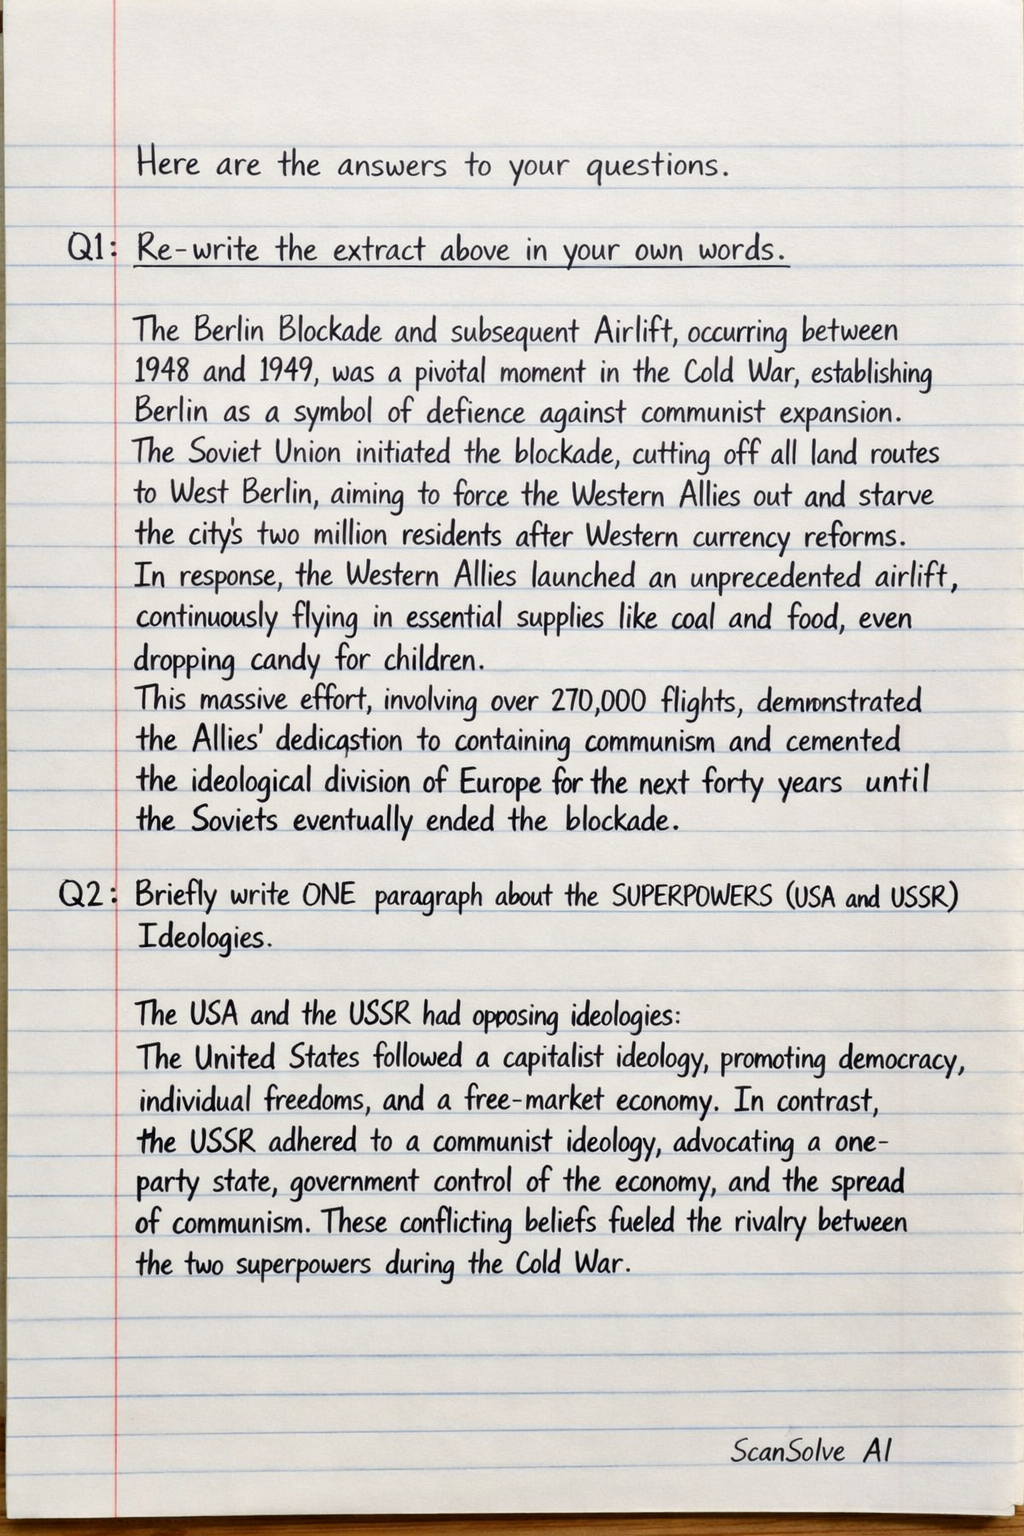 Here are the answers to your questions.
Q1: Re-write the extract above in your own words.
The Berlin Blockade and subsequent Airlift, occurring between
1948 and 1949, was a pivotal moment in the Cold War, establishing
Berlin as a symbol of defience against communist expansion.
The Soviet Union initiated the blockade, cutting off all land routes
to West Berlin, aiming to force the Western Allies out and starve
the city's two million residents after Western currency reforms.
In response, the Western Allies launched an unprecedented airlift,
continuously flying in essential supplies like coal and food, even
dropping candy for children.
This massive effort, involving over 270,000 flights, demonstrated
the Allies' dedication to containing communism and cemented
the ideological division of Europe for the next forty years until
the Soviets eventually ended the blockade.
Q2: Briefly write ONE paragraph about the SUPERPOWERS (USA and USSR)
Ideologies.
The USA and the USSR had opposing ideologies:
The United States followed a capitalist ideology, promoting democracy,
individual freedoms, and a free-market economy. In contrast,
the USSR adhered to a communist ideology, advocating a one-
party state, government control of the economy, and the spread
of communism. These conflicting beliefs fueled the rivalry between
the two superpowers during the Cold War.
ScanSolve AI